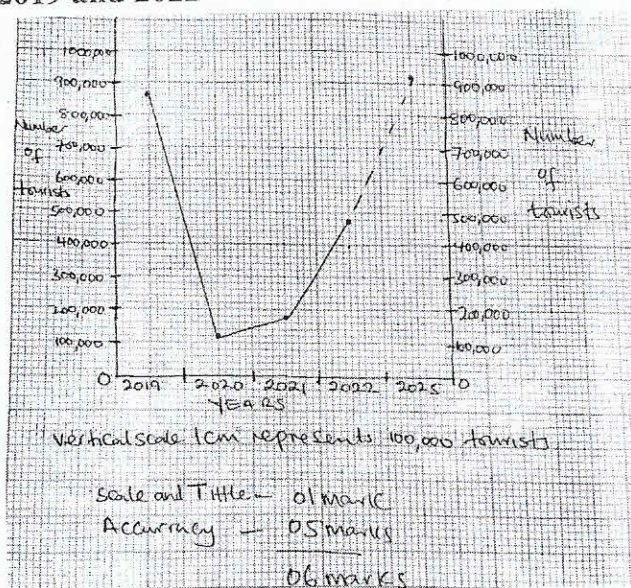 2019 and 2022
1000,000
900,000
800,000
700,000
600,000
500,000
400,000
300,000
200,000
100,000
0
Number
of
tourists
2019 2020 2021 2022 2025
YEARS
1000,000
900,000
800,000
700,000
600,000
500,000
400,000
300,000
200,000
100,000
0
Number
of
tourists
Vertical scale 1cm represents 100,000 tourists
Scale and Tittle - 01 mark
Accurracy - 05 marks
06 marks